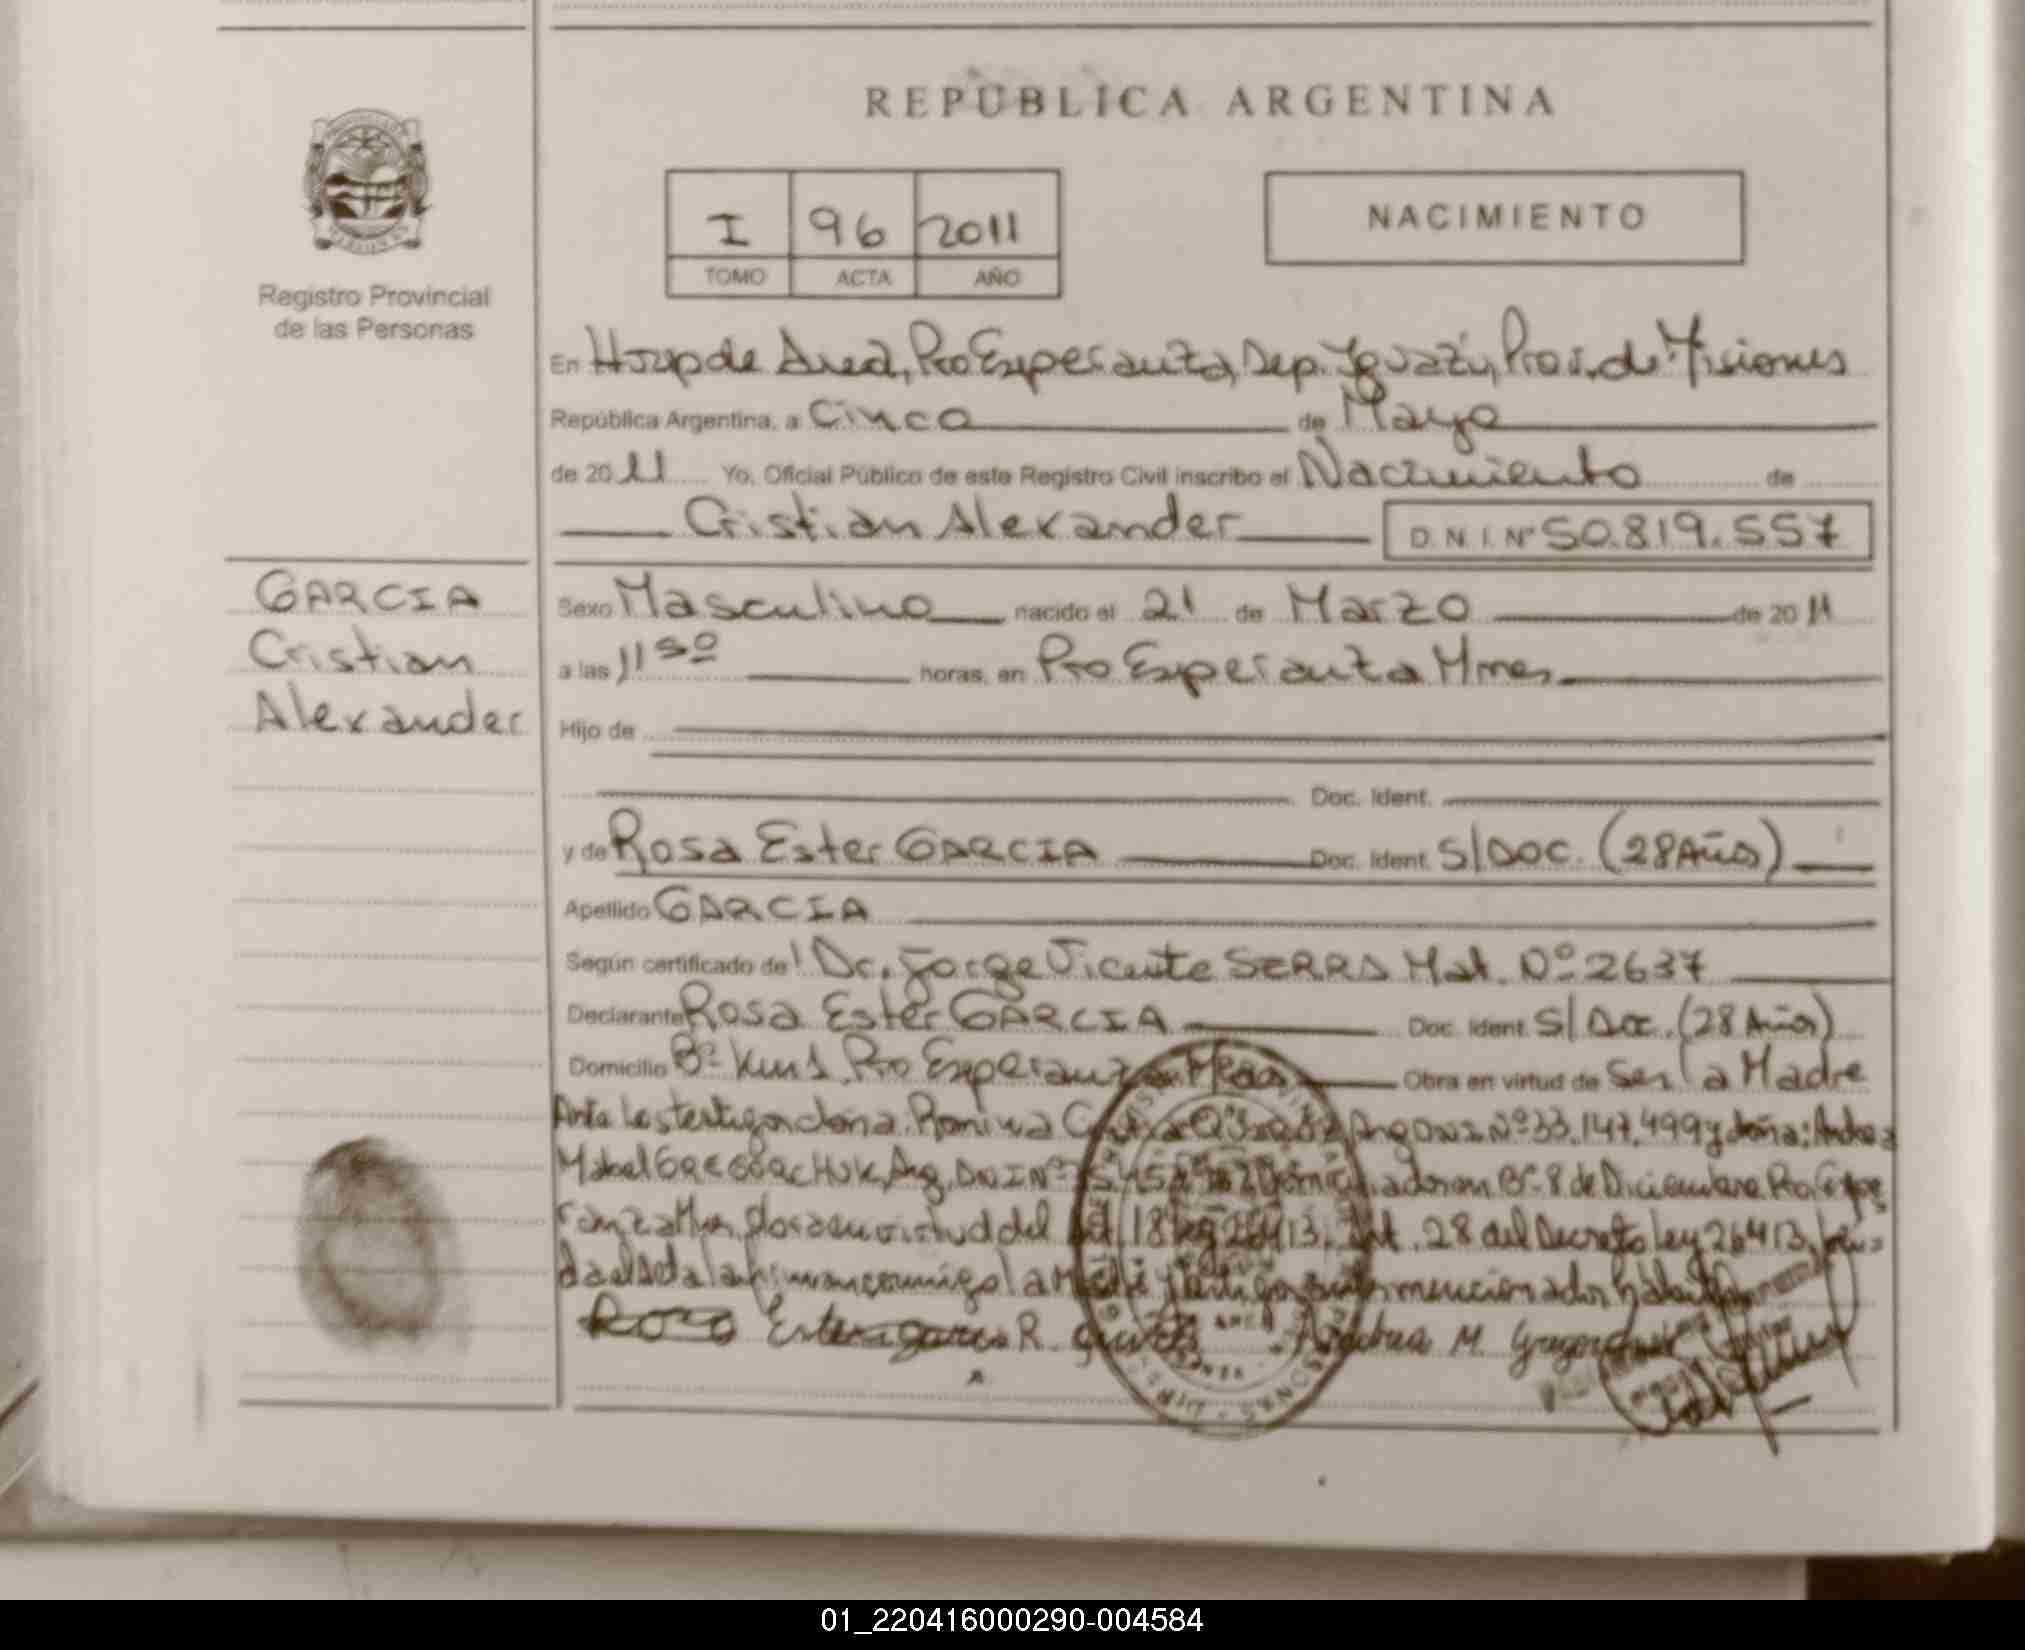 REPÚBLICA ARGENTINA
I 96 2011
TOMO ACTA AÑO
NACIMIENTO
Registro Provincial
de las Personas
En Hosp de Area, Pto Esperanza, Dep. Iguazú, Prov. de Misiones
República Argentina, a Cinco de Mayo
de 2011 Yo, Oficial Público de este Registro Civil inscribo el Nacimiento de
Cristian Alexander D.N.I. Nº 50.819.557
GARCIA
Cristian
Alexander
Sexo Masculino nacido el 21 de Marzo de 2011
a las 11 50 horas, en Pto Esperanza Mnes
Hijo de
Doc. Ident.
y de Rosa Ester GARCIA Doc. Ident. S/DOC. (28 Años)
Apellido GARCIA
Según certificado de Dr. Jorge Vicente SERRA Mat. Nº 2637
Declarante Rosa Ester GARCIA Doc. Ident. S/Doc. (28 Años)
Domicilio Bº Km 1, Pto Esperanza Obra en virtud de Ser la Madre
Ante los testigos doña: Romina Nº 33.147.499 y doña: Andrea
Mabel GREGORCHUK, Arg. DNI Nº Bº 8 de Diciembre Pto Espe
ranza Mnes. en virtud del Art. 18 Ley 26413, Art. 28 del Decreto Ley 26413, leí
da el Acta la firman conmigo la Madre y testigos
Ester R. Andrea M.
01_220416000290-004584